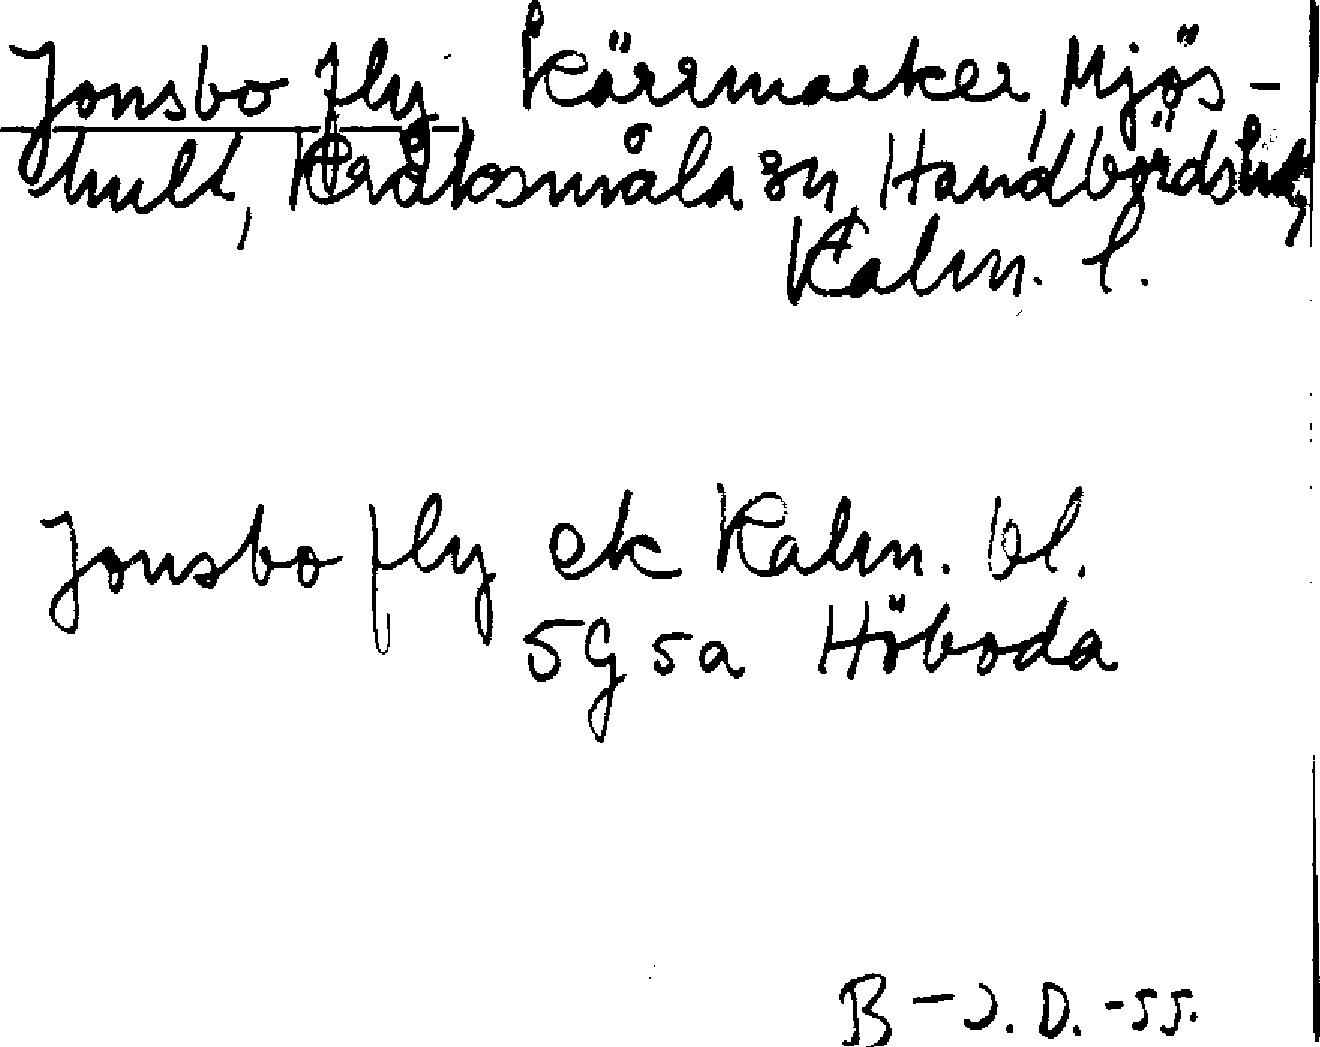 Jonsbo fly, Kärrmarker, Mjös-
hult, Kråksmåla sn, Handbörds hd,
Kalm. l.
Jonsbo fly ek Kalm. bl.
5G 5a Höboda
B-J. D. -55.